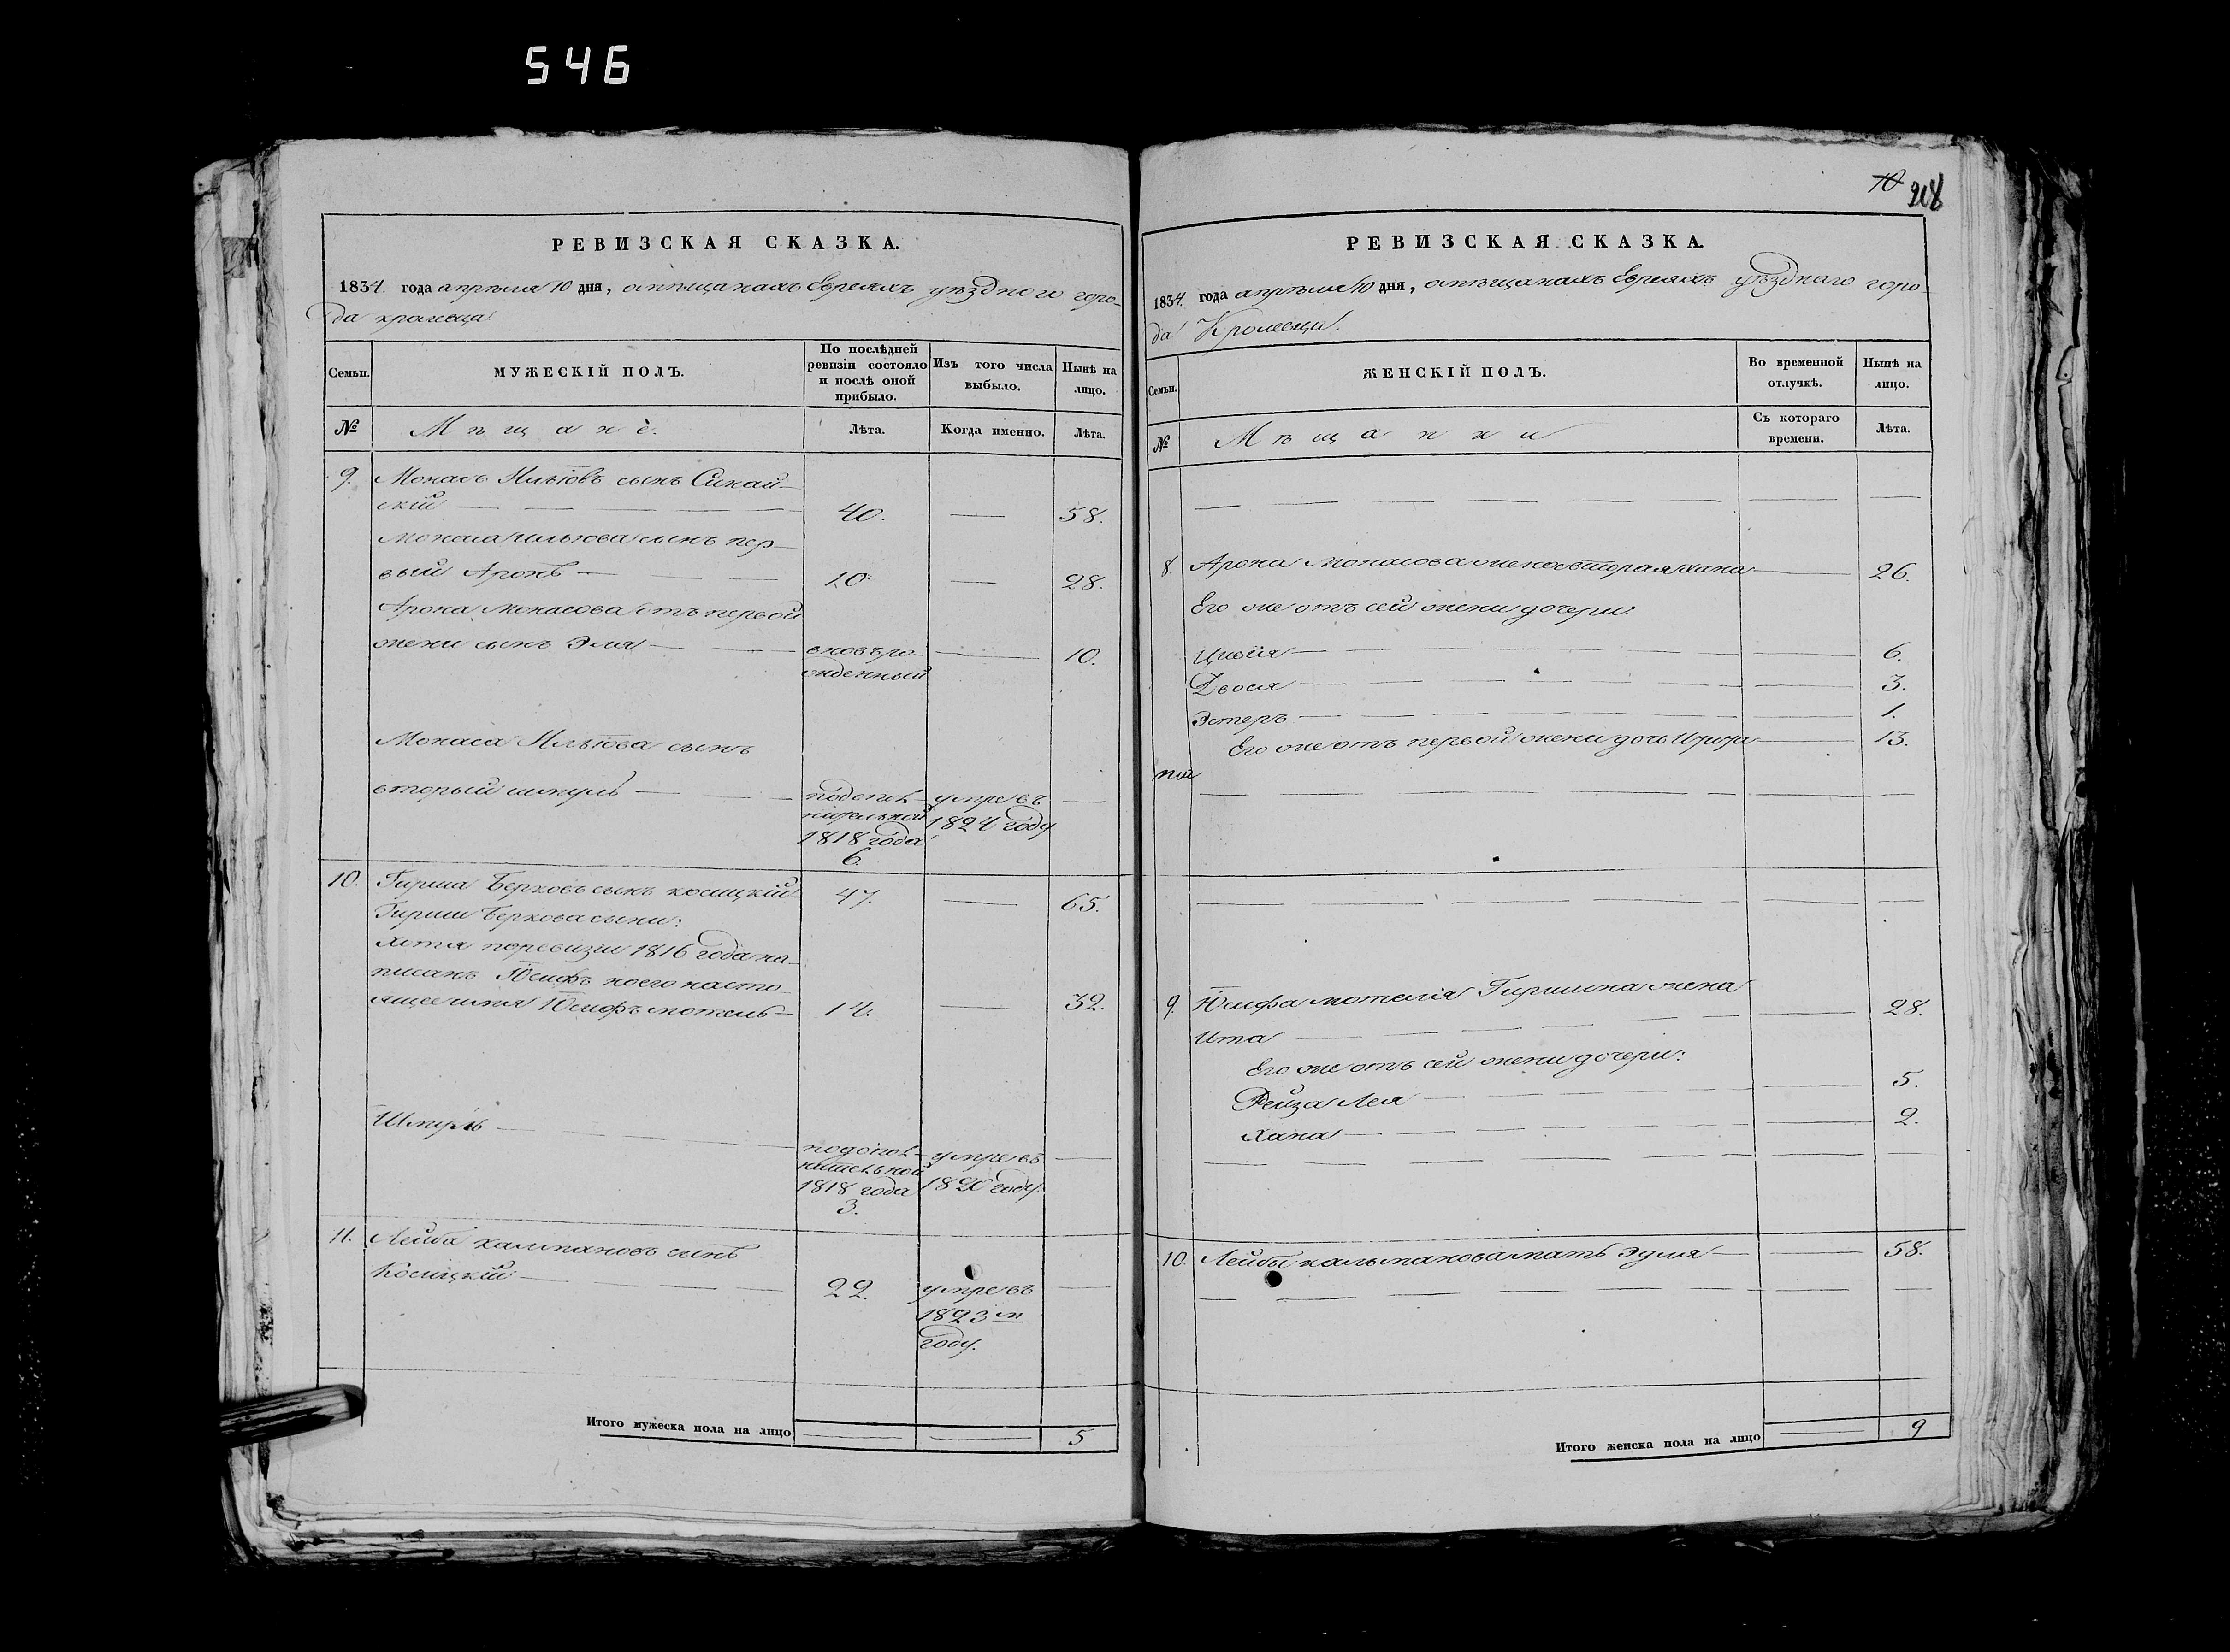 546
РЕВИЗСКАЯ СКАЗКА.
1834. года апрѣля 10 дня, о мѣщанахъ Евреяхъ уѣзднаго горо-
да кролевца
Семьи.
МУЖЕСКІЙ ПОЛЪ.
По послѣдней
ревизіи состояло
и послѣ оной
прибыло.
Изъ того числа
выбыло.
Нынѣ на
лицо.
№
Мѣщанѐ.
Лѣта.
Когда именно.
Лѣта.
9. Монасъ Ильювъ сынъ Синай-
скій 40. 58.
Монаса Ильюва сынъ пер-
вый Аронъ 10. 28.
Арона Монасова отъ первой
жени сынъ Эля вновь ро- 10.
жденный
Монаса Ильюва сынъ
вторый Шмуль умре въ
1824 году
1818 года
6.
10. Гирша Берковъ сынъ косицкій 47. 65.
Гирши Беркова сыни:
Хотя по ревизіи 1816 года на-
писанъ Юсифъ но его насто-
ящее имя Юсифъ мотель 14. 32.
Шмуль умре въ
1818 года 1820 году.
3.
11. Лейба калмановъ сынъ
Косицкій 22. умре въ
1823 м
году.
Итого мужеска пола на лицо 5
10 218
РЕВИЗСКАЯ СКАЗКА.
1834. года апрѣля 10 дня, о мѣщанахъ Евреяхъ уѣзднаго горо-
да Кролевца.
Семьи.
ЖЕНСКІЙ ПОЛЪ.
Во временной
отлучкѣ.
Нынѣ на
лицо.
№
Мѣщанки
Съ котораго
времени.
Лѣта.
8. Арона Монасова жена вторая хана 26.
Его же отъ сей жени дочери:
Цивія 6.
Двося 3.
Эстеръ 1.
Его же отъ первой жени дочь 13.
9. Юсифа мотеля Гиршина жена 28.
Ита
Его же отъ сей жени дочери:
Рейза Лея 5.
Хана 2.
10. Лейбы кальманова мать Эдля 58.
Итого женска пола на лицо 9